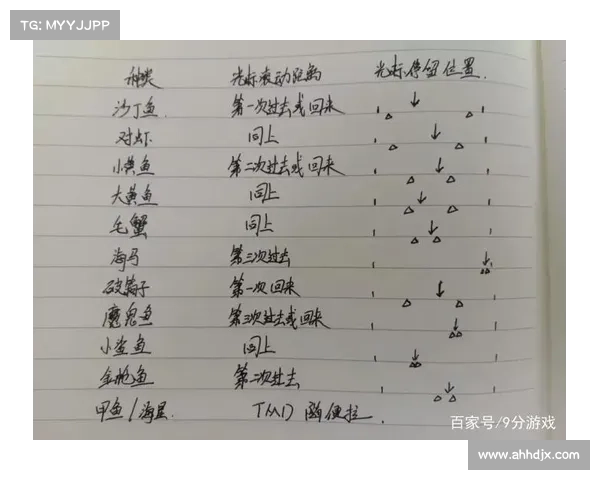 TG: MYYJJPP
种类 光标滚动距离 光标停留位置.
沙丁鱼 第一次过去或回来
对虾 同上
小黄鱼 第二次过去或回来
大黄鱼 同上
毛蟹 同上
海马 第三次过去
破筒子 第一次回来
魔鬼鱼 第三次过去或回来
小鲨鱼 同上
金枪鱼 第二次过去
甲鱼/海星. TMD随便拉.
百家号/9分游戏
www.ahhdjx.com